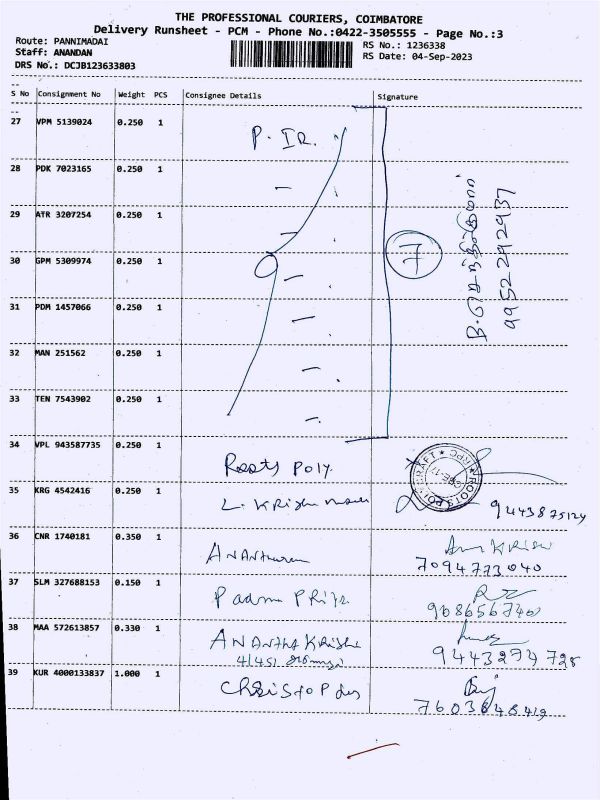 THE PROFESSIONAL COURIERS, COIMBATORE
Delivery Runsheet - PCM - Phone No.:0422-3505555 - Page No.:3
Route: PANNIMADAI
Staff: ANANDAN
DRS No.: DCJB123633803
RS No.: 1236338
RS Date: 04-Sep-2023
S No Consignment No Weight PCS Consignee Details Signature
27 VPM 5139024 0.250 1 P. IR.
28 PDK 7023165 0.250 1
29 ATR 3207254 0.250 1
30 GPM 5309974 0.250 1
31 PDM 1457066 0.250 1
32 MAN 251562 0.250 1
33 TEN 7543902 0.250 1
7
9952292937
34 VPL 943587735 0.250 1 Roots Poly.
35 KRG 4542416 0.250 1 L. Krishna
9443875124
36 CNR 1740181 0.350 1
7094773040
37 SLM 327688153 0.150 1 Padma PRiya
908656740
38 MAA 572613857 0.330 1 ANANTHA KRISHN
41451
9443294725
39 KUR 4000133837 1.000 1 Christopher